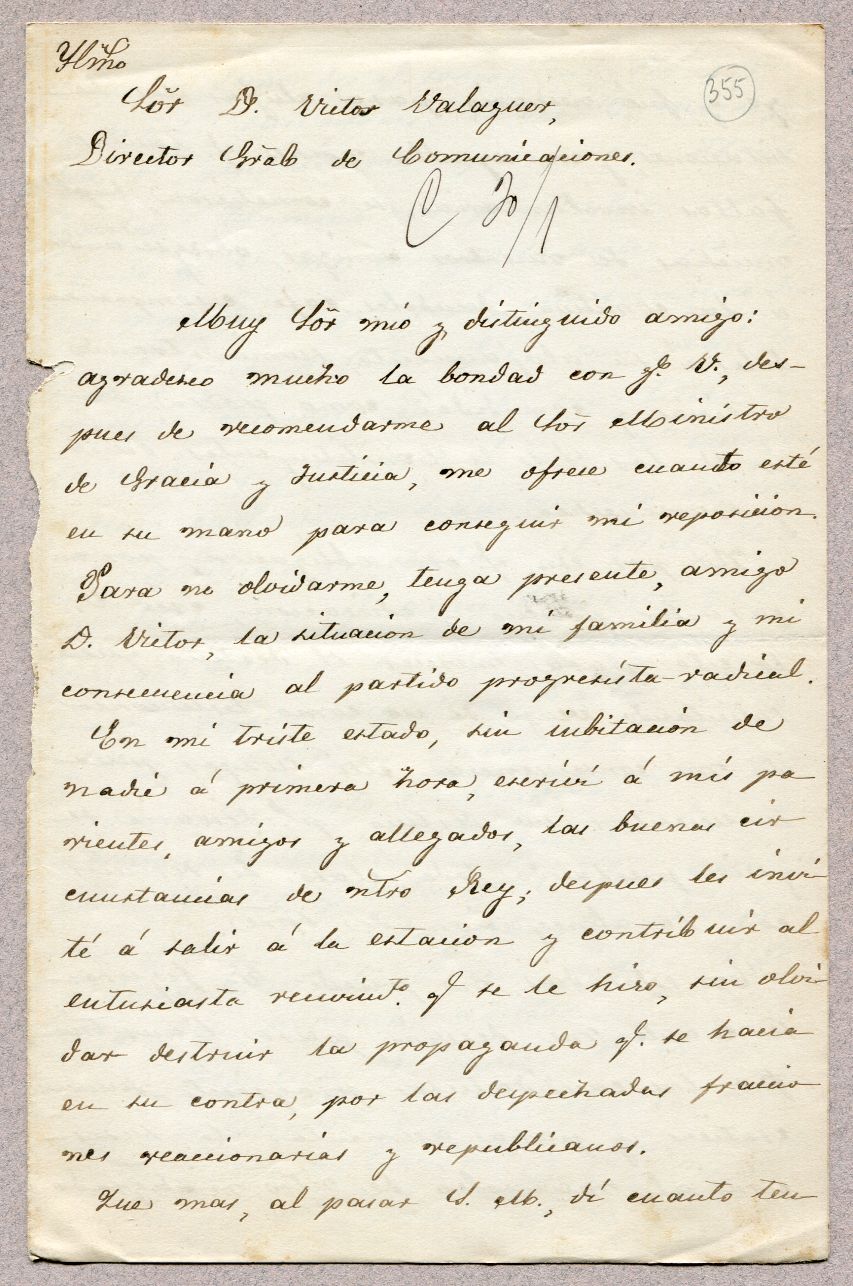 Ylm̃o
355
Sõr D. Victor Valaguer,
Director Grãl de Comunicaciones.
C 30/1
Muy Sõr mio y distinguido amigo:
agradesco mucho la bondad con q.e V., des-
pues de recomendarme al Sõr Ministro
de Gracia y Justicia, me ofrece cuanto esté
en su mano para conseguir mi reposición.
Para no olvidarme, tenga presente, amigo
D. Victor, la situación de mi familia y mi
consecuencia al partido progresista-radical.
En mi triste estado, sin inbitación de
nadie á primera hora, escriví á mis pa
rientes, amigos y allegados, las buenas cir
cunstancias de ntro Rey; despues les invi
té á salir á la estacion y contribuir al
entusiasta recivimt.o q.e se le hizo, sin olvi
dar destruir la propaganda q.e se hacia
en su contra, por las despechadas fraccio
nes reaccionarias y republicanos.
Que mas, al pasar S. M., dí cuanto ten